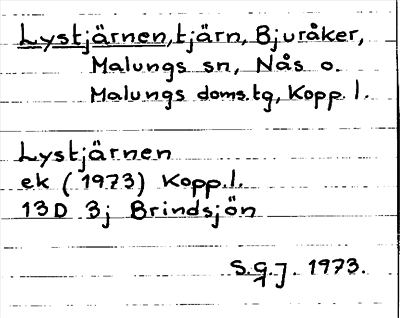 Lystjärnen, tjärn, Bjuråker,
Malungs sn, Nås o.
Malungs doms.tg, Kopp. l.
Lystjärnen
ek (1973) Kopp.l.
13D 3j Brindsjön
S.G.J. 1973.